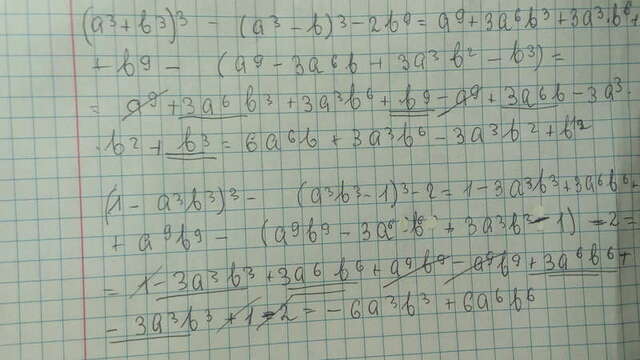 (a³+b³)³ - (a³-b)³-2b⁹ = a⁹+3a⁶b³+3a³b⁶+
+ b⁹ - (a⁹-3a⁶b+3a³b²-b³) =
= a⁹+3a⁶b³+3a³b⁶+b⁹-a⁹+3a⁶b-3a³·
·b²+b³ = 6a⁶b+3a³b⁶-3a³b²+b¹²
(1-a³b³)³ - (a³b³-1)³-2 = 1-3a³b³+3a⁶b⁶+
+ a⁹b⁹ - (a⁹b⁹-3a⁶b⁶+3a³b²-1) -2 =
= 1-3a³b³+3a⁶b⁶+a⁹b⁹-a⁹b⁹+3a⁶b⁶+
- 3a³b³+1-2 = -6a³b³+6a⁶b⁶